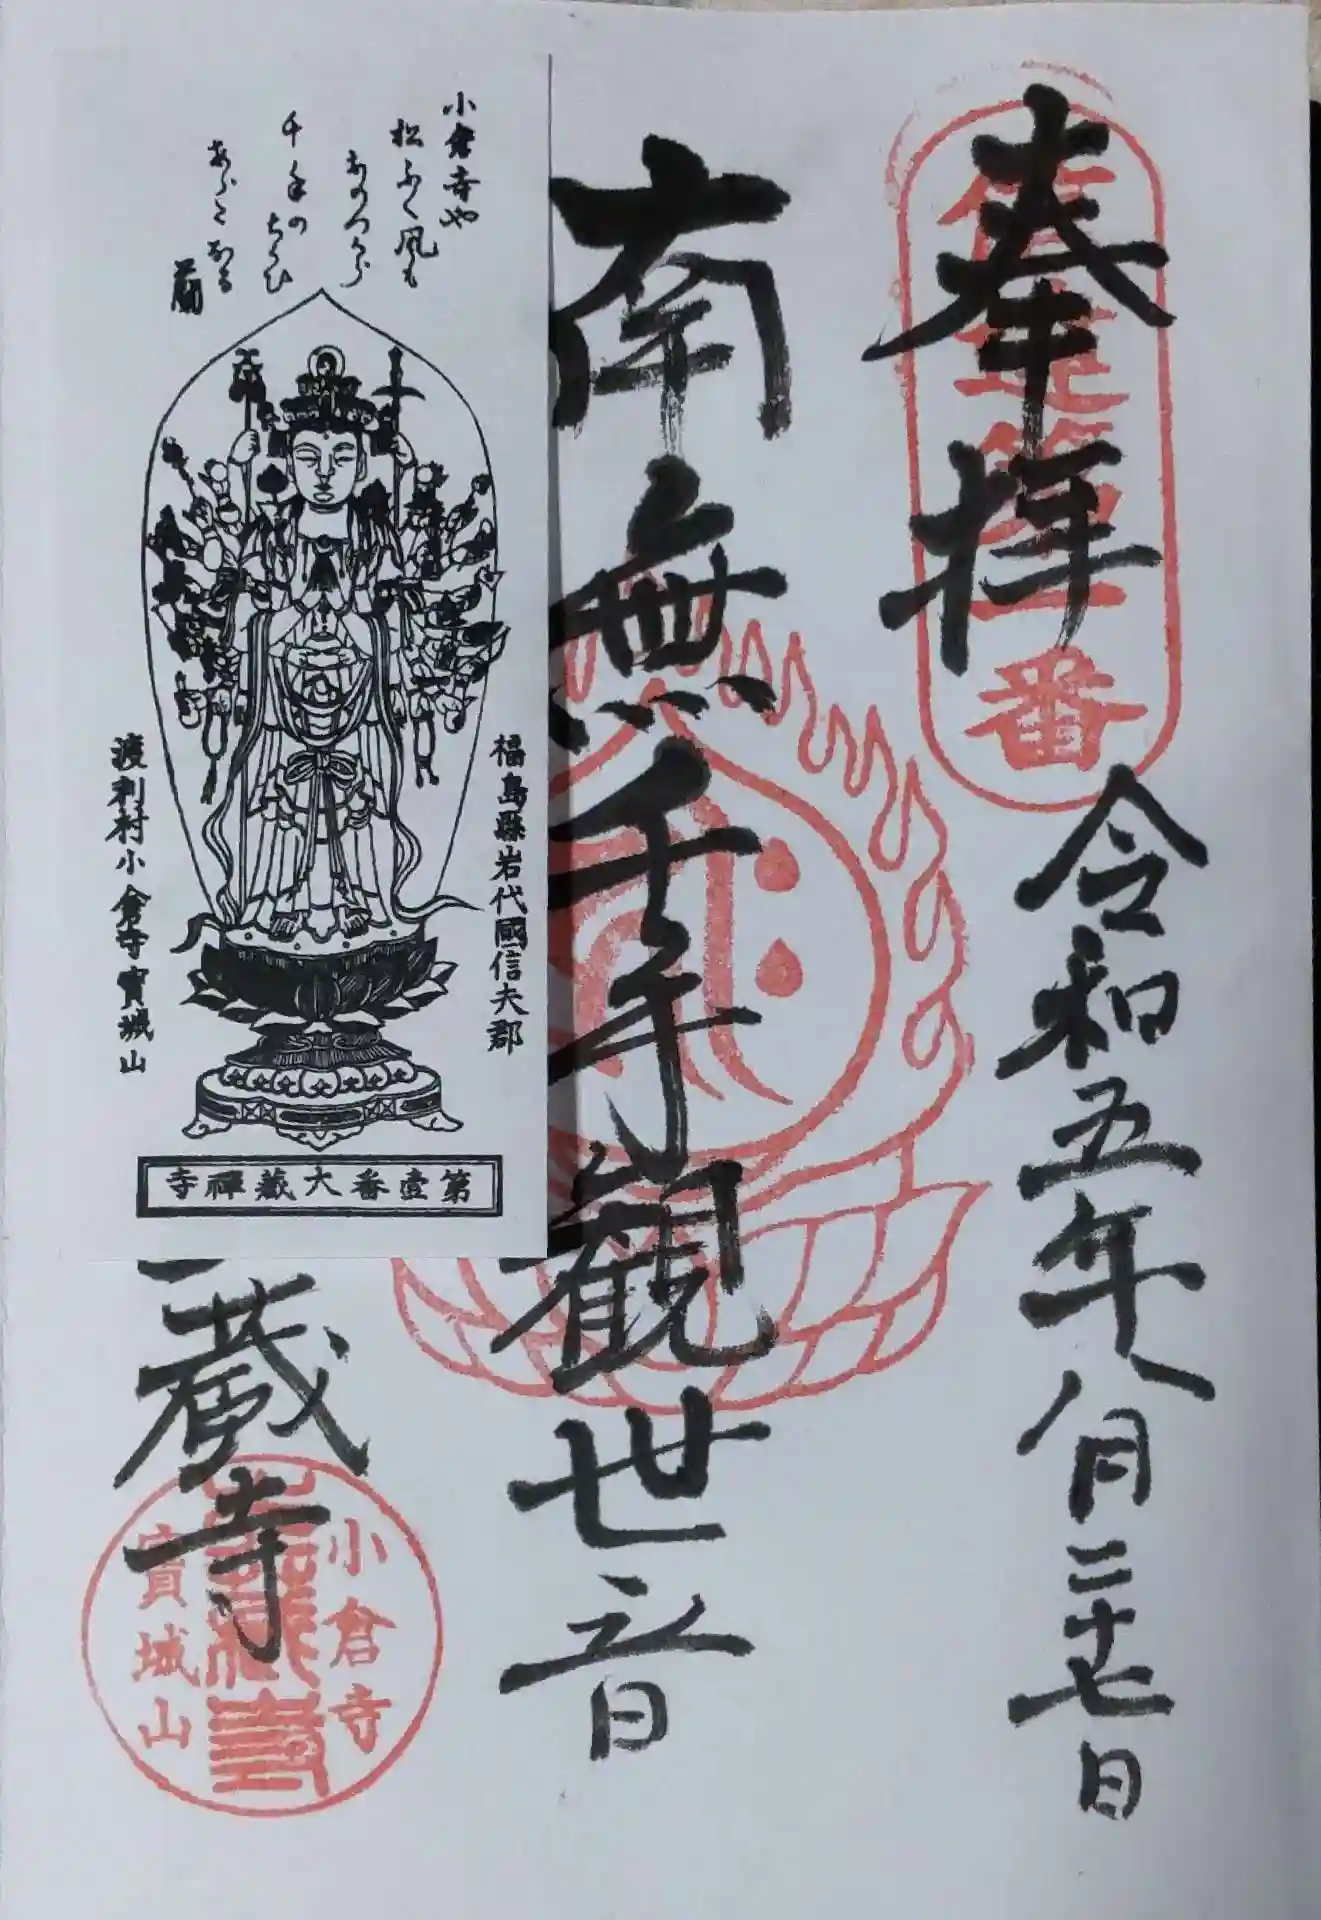 奉拝
令和五年八月二十七日
番
南無千手観世音
蔵寺
小倉寺
寳城山
小倉寺や
松ふく風も
おのつから
千手の
ちかひ
あらたなる
福島縣岩代國信夫郡
渡利村小倉寺寳城山
第壹番大蔵禅寺